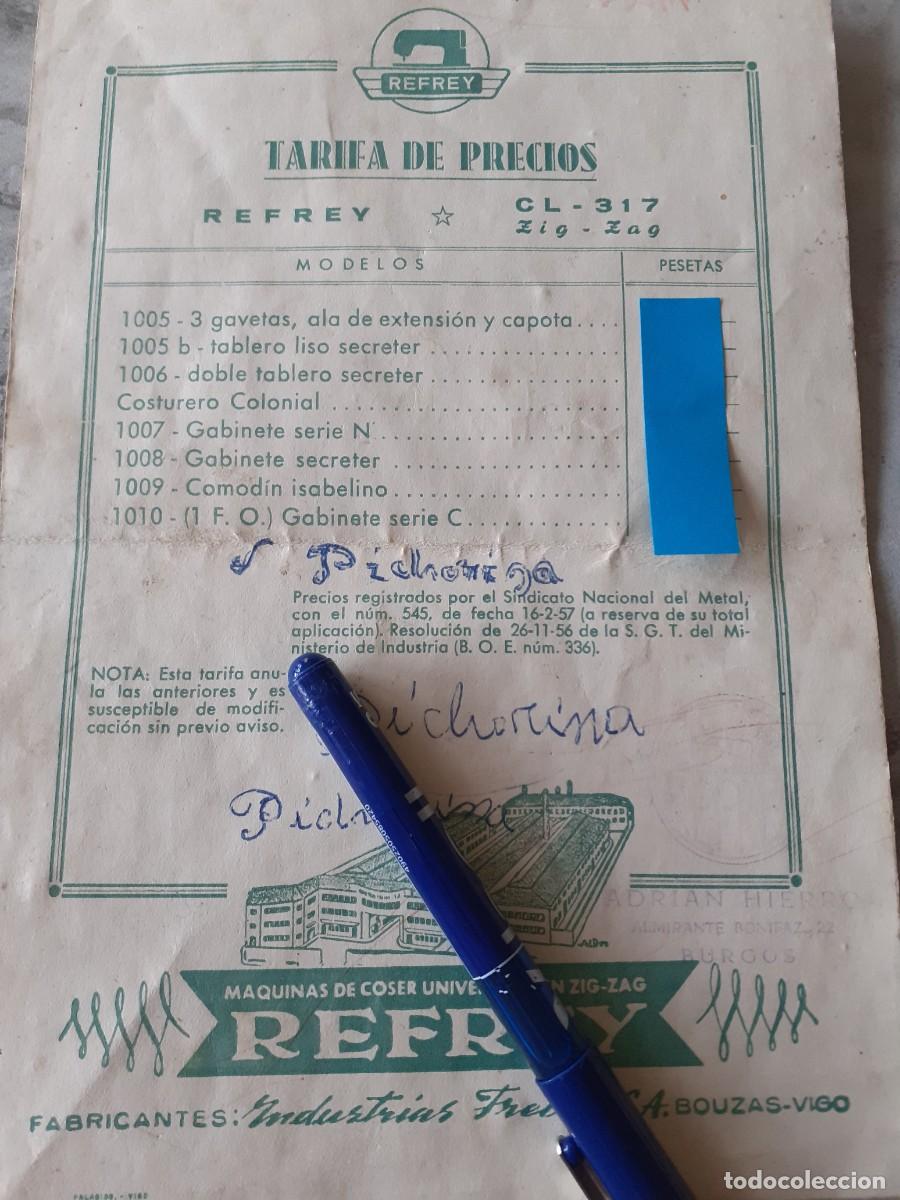 REFREY
TARIFA DE PRECIOS
REFREY ☆ CL - 317
Zig - Zag
MODELOS PESETAS
1005 - 3 gavetas, ala de extensión y capota....
1005 b - tablero liso secreter
1006 - doble tablero secreter
Costurero Colonial
1007 - Gabinete serie N
1008 - Gabinete secreter
1009 - Comodín isabelino
1010 - (1 F. O.) Gabinete serie C
Precios registrados por el Sindicato Nacional del Metal,
con el núm. 545, de fecha 16-2-57 (a reserva de su total
aplicación). Resolución de 26-11-56 de la S. G. T. del Mi-
nisterio de Industria (B. O. E. núm. 336).
NOTA: Esta tarifa anu-
la las anteriores y es
susceptible de modifi-
cación sin previo aviso.
4902505085420
ADRIAN HIERRO
ALMIRANTE BONIFAZ, 22
BURGOS
MAQUINAS DE COSER ZIG-ZAG
REFREY
FABRICANTES: Industrias S.A. BOUZAS-VIGO
todocoleccion